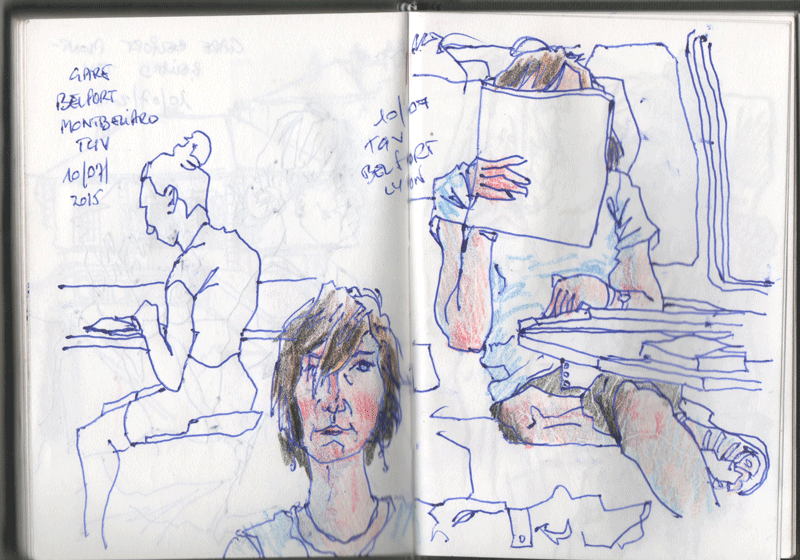 GARE
BELFORT
MONTBELIARD
TGV
10/07/
2015
10/07
TGV
BELFORT
LYON